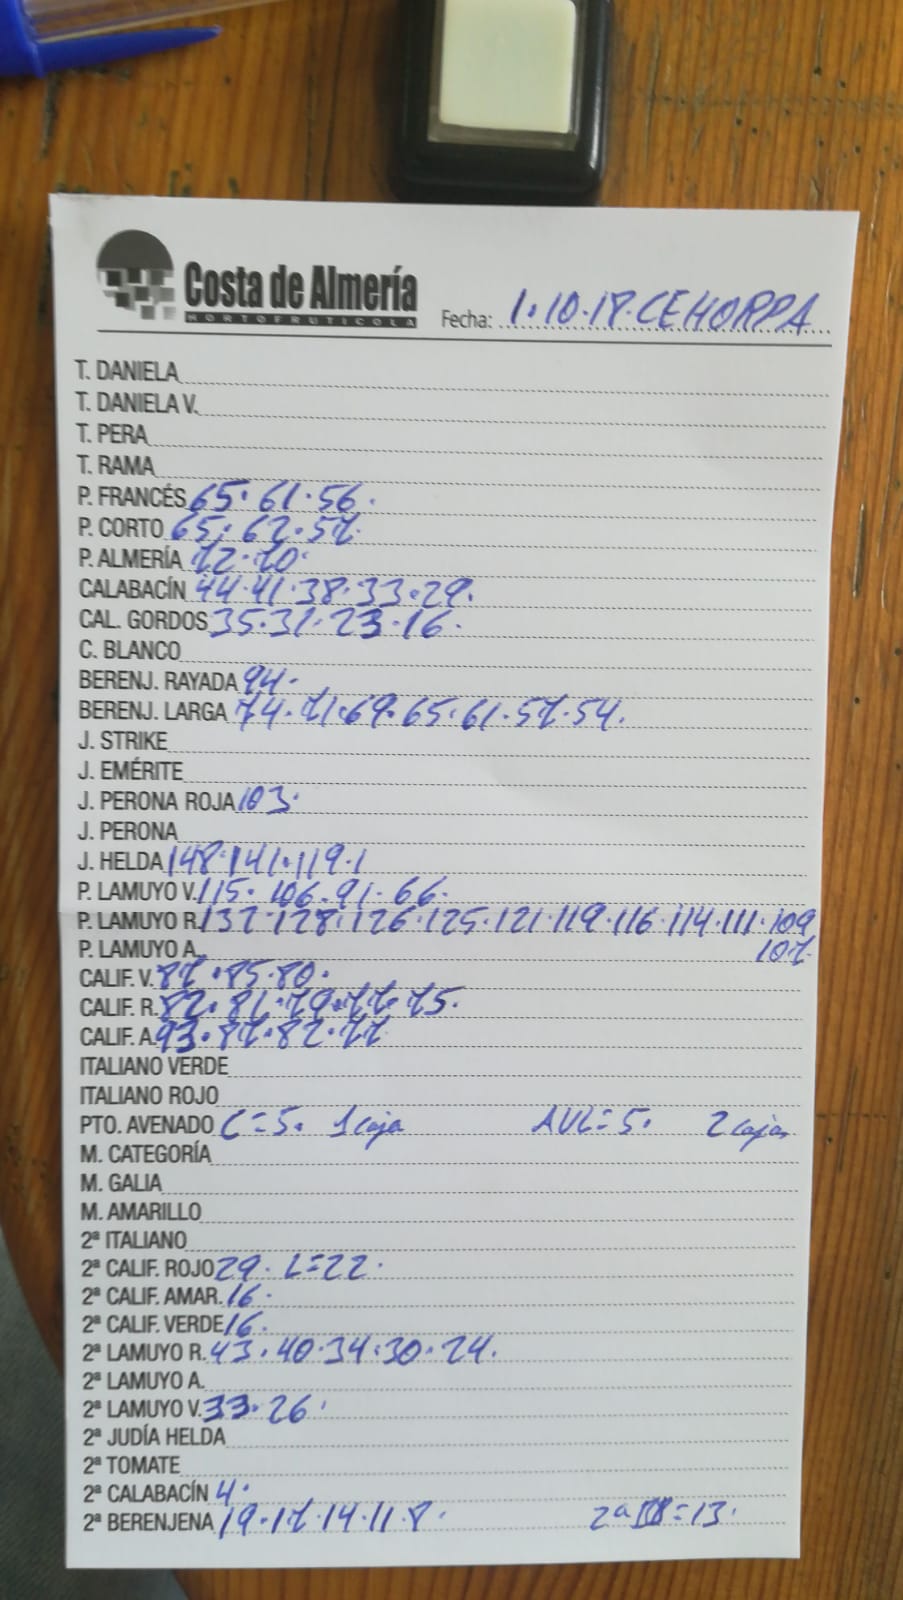 Costa de Almería
HORTOFRUTICOLA
Fecha: 1.10.18. CEHORPA
T. DANIELA
T. DANIELA V.
T. PERA
T. RAMA
P. FRANCÉS 65. 61. 56.
P. CORTO 65. 62. 57.
P. ALMERÍA 72. 70.
CALABACÍN 44. 41. 38. 33. 29.
CAL. GORDOS 35. 31. 23. 16.
C. BLANCO
BERENJ. RAYADA 94.
BERENJ. LARGA 74. 71. 69. 65. 61. 57. 54.
J. STRIKE
J. EMÉRITE
J. PERONA ROJA 103.
J. PERONA
J. HELDA 148. 141. 119. 1
P. LAMUYO V. 115. 106. 91. 66.
P. LAMUYO R. 132. 128. 126. 125. 121. 119. 116. 114. 111. 109
P. LAMUYO A. 107.
CALIF. V. 87. 85. 80.
CALIF. R. 82. 81. 79. 77. 75.
CALIF. A. 93. 87. 82. 77
ITALIANO VERDE
ITALIANO ROJO
PTO. AVENADO C=5. 1 caja AVL=5. 2 cajas
M. CATEGORÍA
M. GALIA
M. AMARILLO
2ª ITALIANO
2ª CALIF. ROJO 29. L=22.
2ª CALIF. AMAR. 16.
2ª CALIF. VERDE 16.
2ª LAMUYO R. 43. 40. 34. 30. 24.
2ª LAMUYO A.
2ª LAMUYO V. 33. 26.
2ª JUDÍA HELDA
2ª TOMATE
2ª CALABACÍN 4.
2ª BERENJENA 19. 17. 14. 11. 8. 2ª =13.